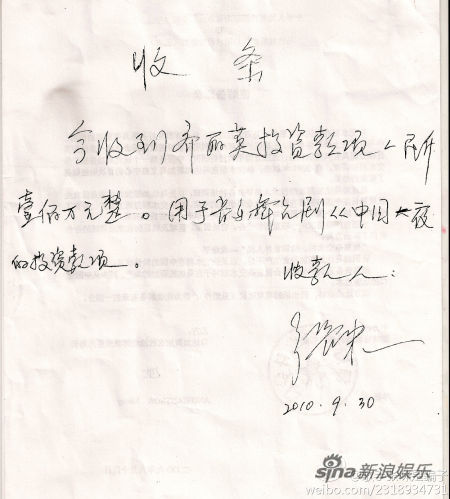 收 条
今收到齐丽英投资款项人民币
壹佰万元整。用于音乐舞台剧《中国夜
的投资款项。
收款人：
2010.9.30
sina新浪娱乐
骗子
weibo.com/2318934731